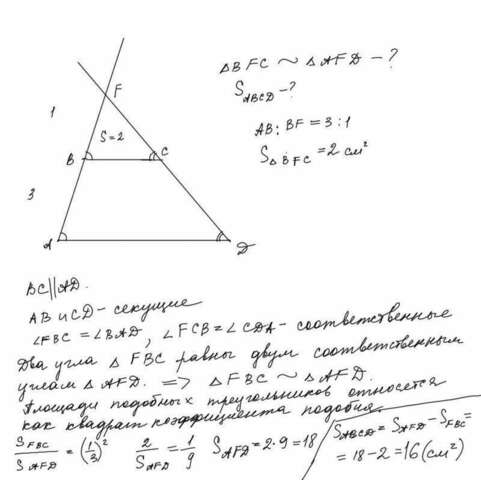 △BFC ~ △AFD - ?
S_ABCD - ?
AB : BF = 3 : 1
S_△BFC = 2 см²
F
1
S=2
B
C
3
A
D
BC || AD.
AB и CD - секущие
∠FBC = ∠BAD, ∠FCB = ∠CDA - соответственные
Два угла △ FBC равны двум соответственным
углам △ AFD. => △ FBC ~ △ AFD.
Площади подобных треугольников относятся
как квадрат коэффициента подобия.
S_FBC / S_AFD = (1/3)² 2 / S_AFD = 1/9 S_AFD = 2·9 = 18
S_ABCD = S_AFD - S_FBC =
= 18 - 2 = 16 (см²)